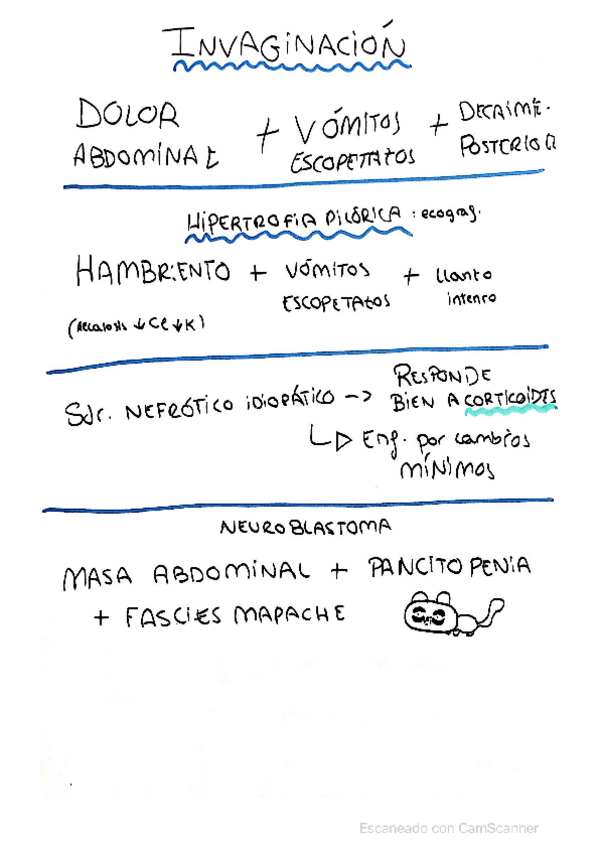 INVAGINACIÓN
DOLOR ABDOMINAL + VÓMITOS ESCOPETATOS + DECAIMIE. POSTERIOR
HIPERTROFIA PILÓRICA : ecogra.
HAMBRIENTO + VÓMITOS ESCOPETATOS + llanto intenso
(Alcalosis ↓Cl ↓K)
Sdr. NEFRÓTICO iDIOPÁTICO -> RESPONDE BIEN A CORTICOIDES
Enf. por cambios MÍNIMOS
NEUROBLASTOMA
MASA ABDOMINAL + PANCITOPENIA
+ FASCIES MAPACHE
Escaneado con CamScanner